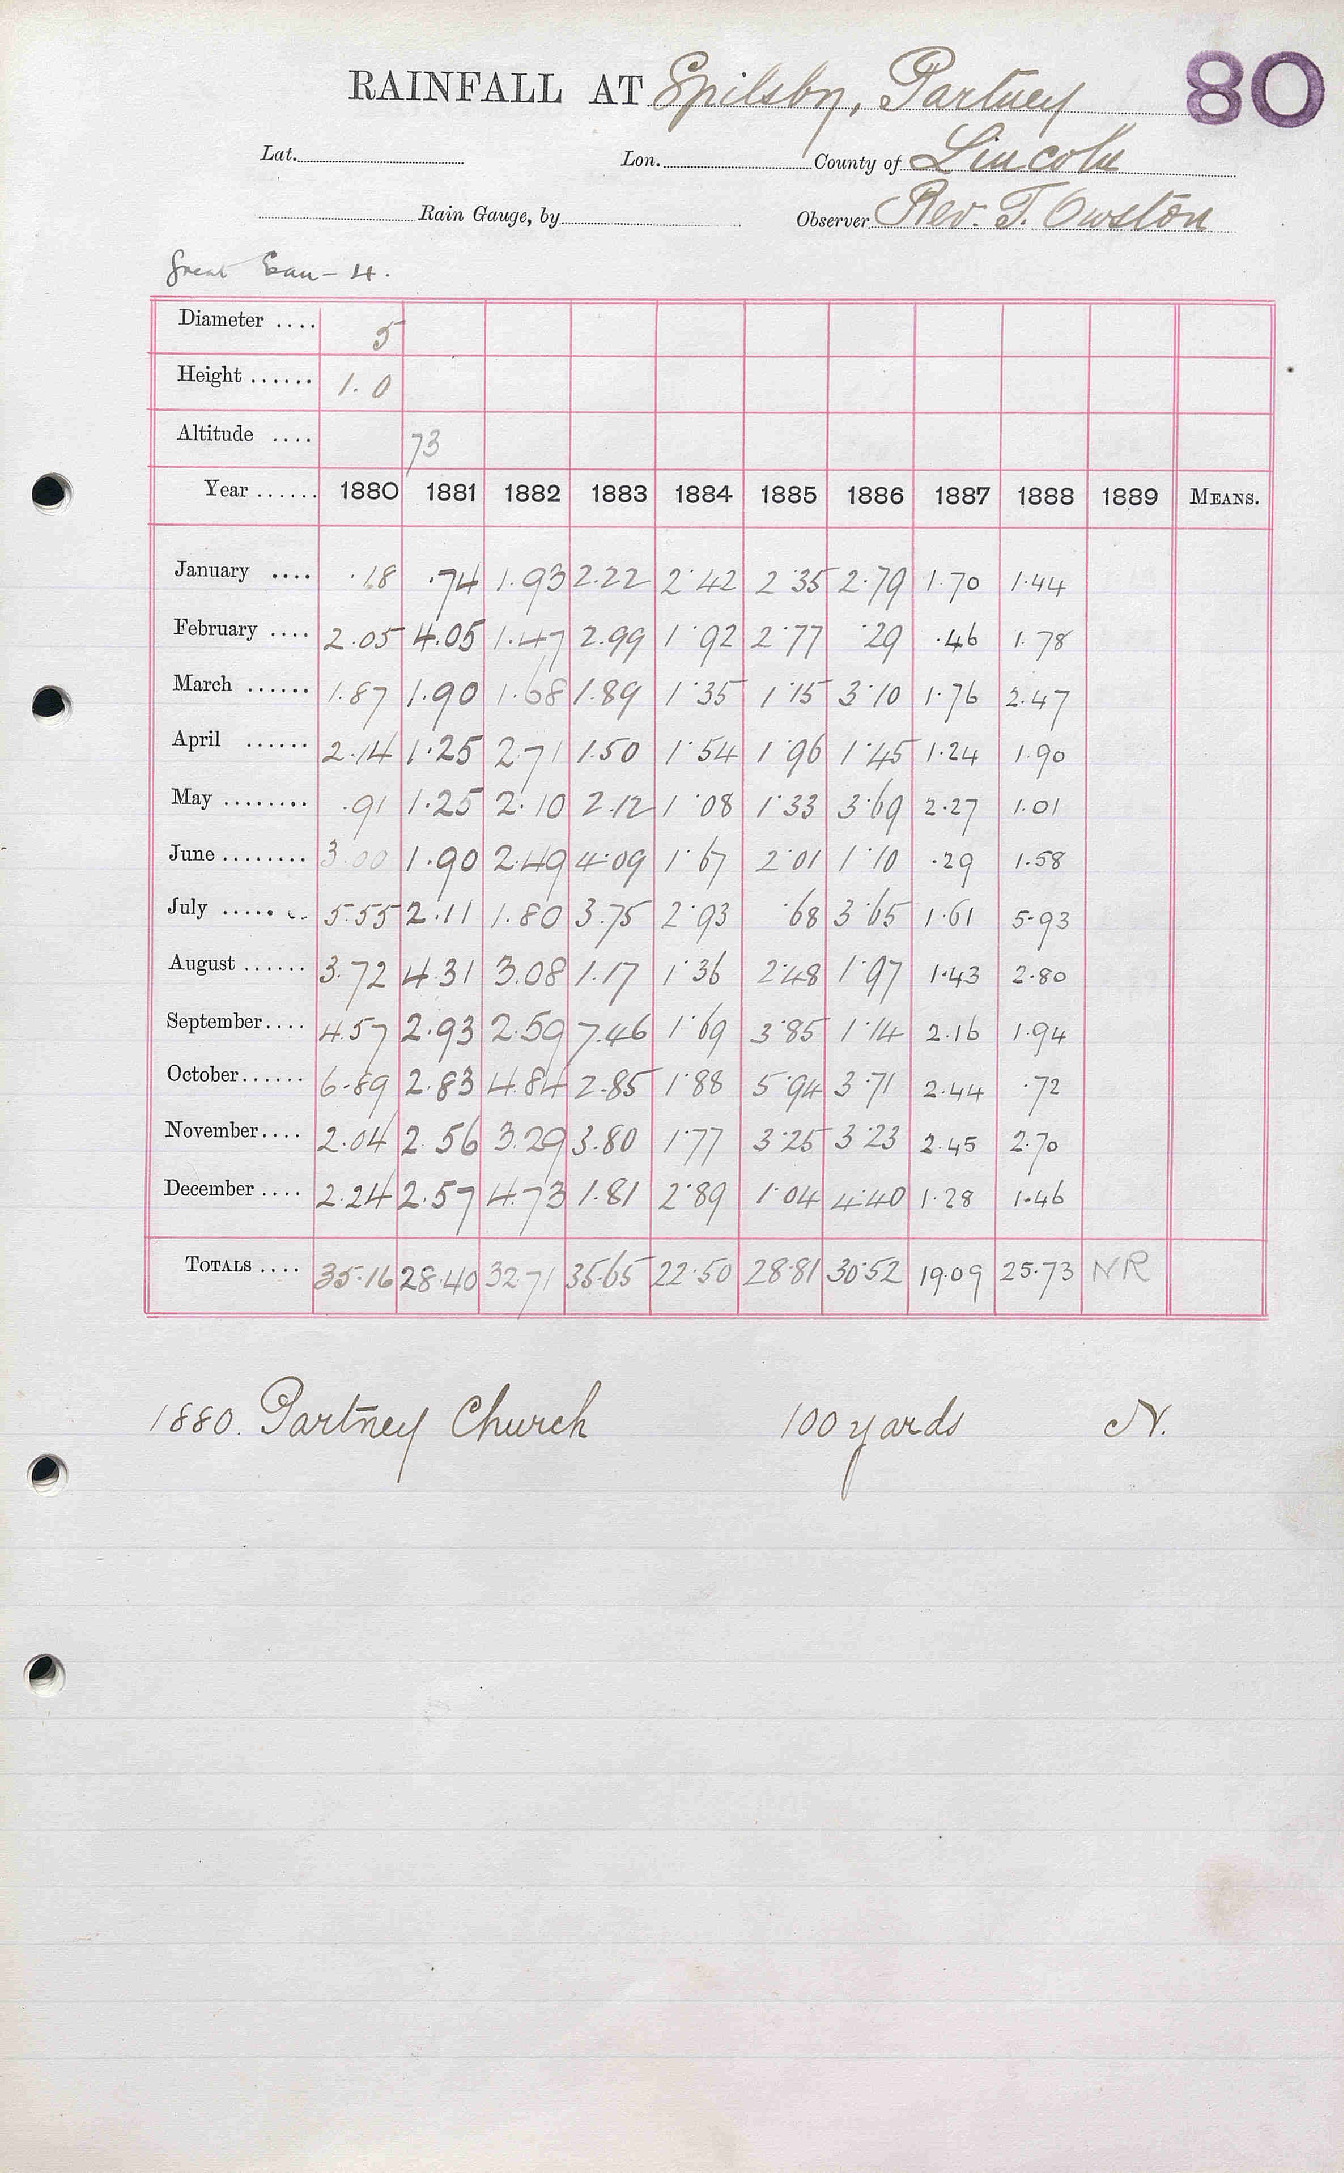 RAINFALL AT Spilsby, Partney 80
Lat. Lon. County of Lincoln
Rain Gauge, by Observer Rev. T. Owston
Great Eau - 4.
Diameter .... 5
Height ...... 1.0
Altitude .... 73
Year ...... 1880 1881 1882 1883 1884 1885 1886 1887 1888 1889 MEANS.
January .... .18 .74 1.93 2.22 2.42 2.35 2.79 1.70 1.44
February .... 2.05 4.05 1.47 2.99 1.92 2.77 .29 .46 1.78
March ...... 1.87 1.90 1.68 1.89 1.35 1.15 3.10 1.76 2.47
April ...... 2.14 1.25 2.71 1.50 1.54 1.96 1.45 1.24 1.90
May ........ .91 1.25 2.10 2.12 1.08 1.33 3.69 2.27 1.01
June ........ 3.00 1.90 2.49 4.09 1.67 2.01 1.10 .29 1.58
July ....... 5.55 2.11 1.80 3.75 2.93 .68 3.65 1.61 5.93
August ...... 3.72 4.31 3.08 1.17 1.36 2.48 1.97 1.43 2.80
September.... 4.57 2.93 2.59 7.46 1.69 3.85 1.14 2.16 1.94
October...... 6.89 2.83 4.84 2.85 1.88 5.94 3.71 2.44 .72
November.... 2.04 2.56 3.29 3.80 1.77 3.25 3.23 2.45 2.70
December .... 2.24 2.57 4.73 1.81 2.89 1.04 4.40 1.28 1.46
TOTALS .... 35.16 28.40 32.71 35.65 22.50 28.81 30.52 19.09 25.73 NR
1880. Partney Church 100 yards N.